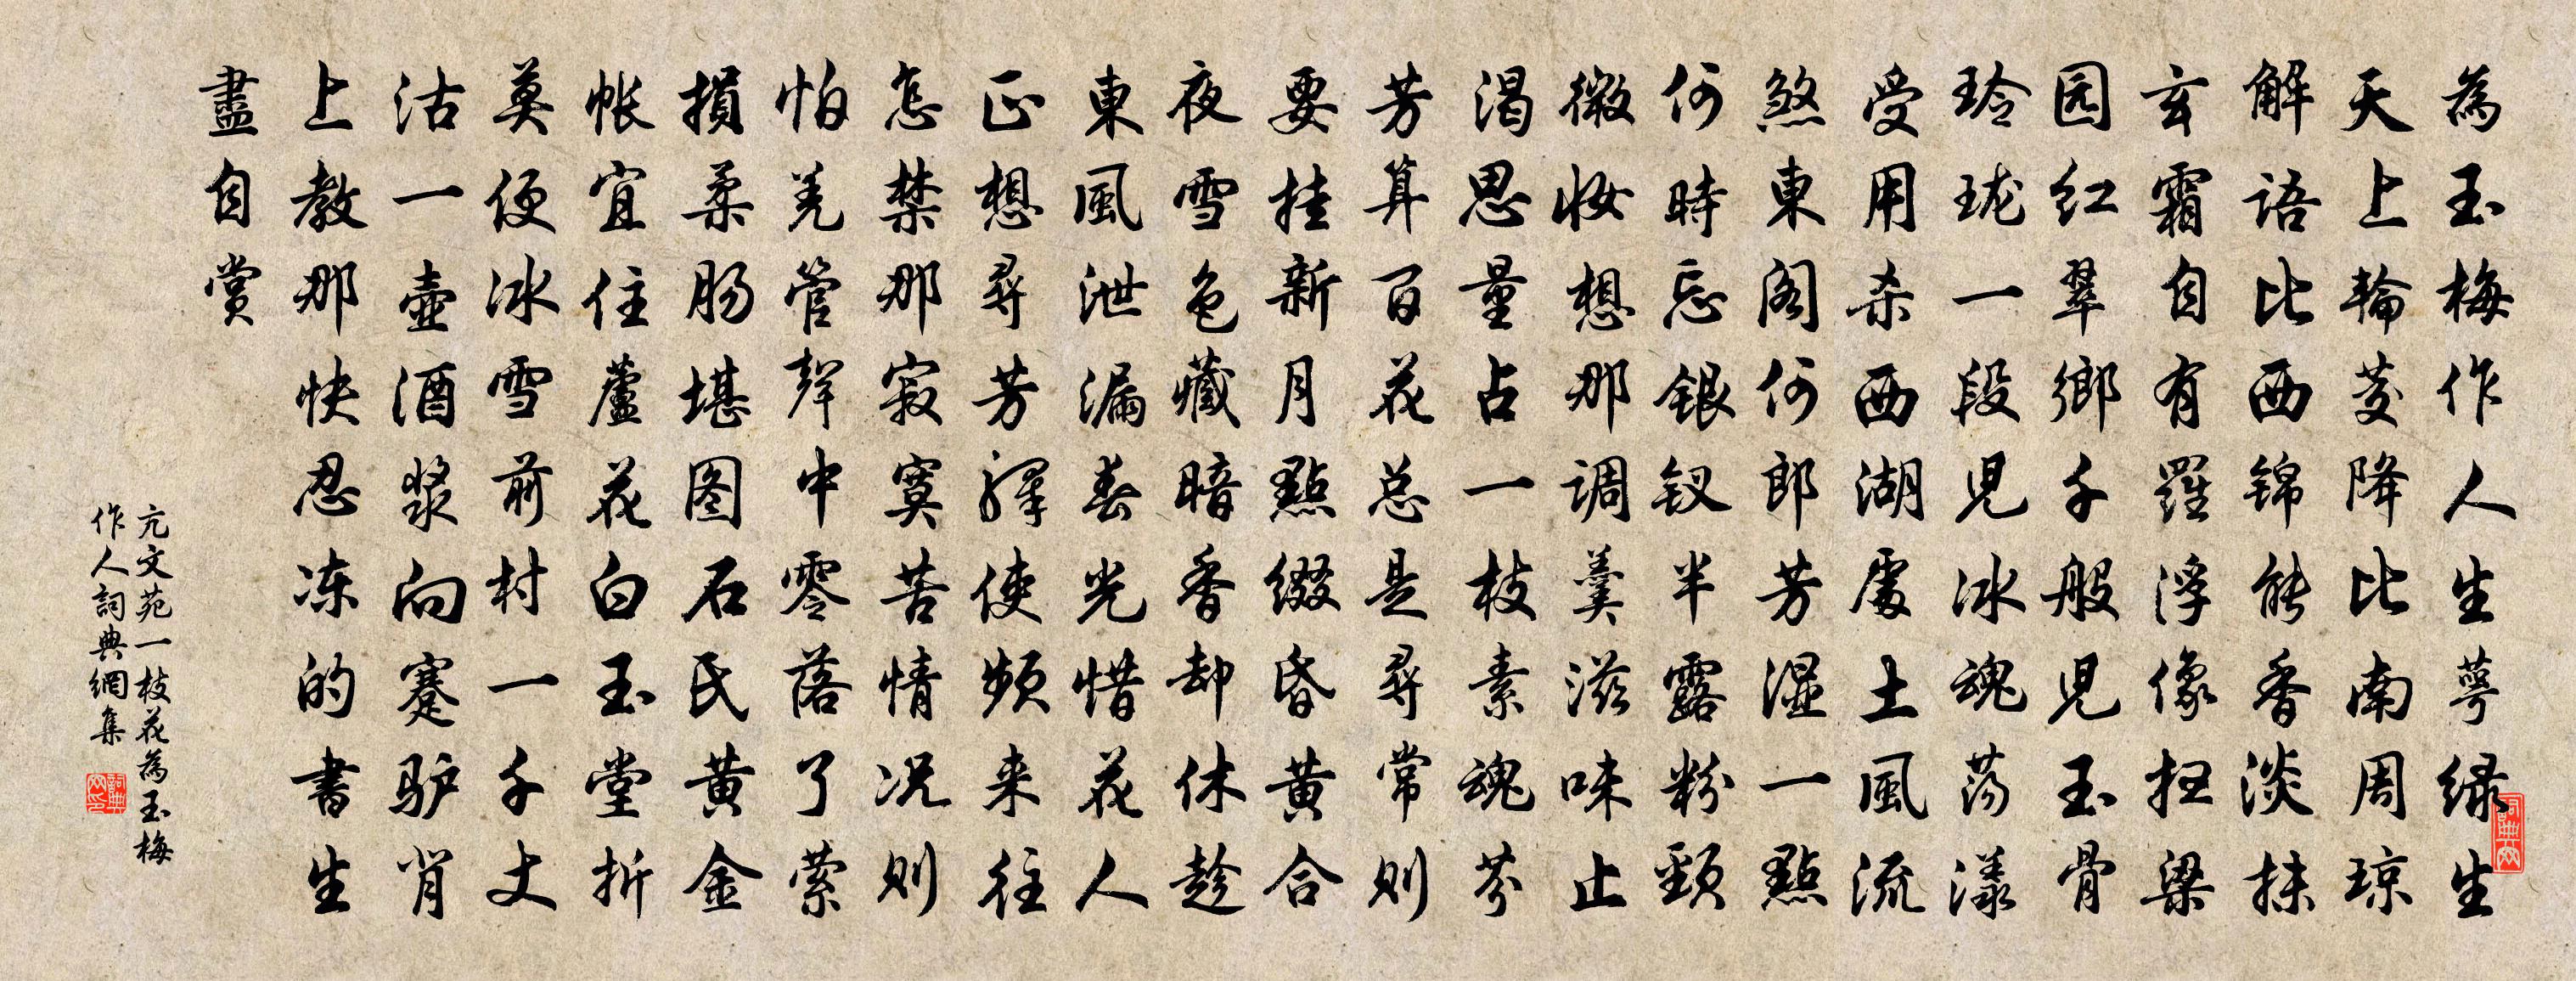 為玉梅作人生萼绿生
天上輪芰降比南周琼
解语比西锦能香淡抹
玄霜自有羅浮像扭梁
园红翠鄉千般児玉骨
玲珑一段児冰魂荡漾
受用杀西湖處土風流
煞東阁何郎芳湿一點
何時忘银钗半露粉頸
微妝想那调羹滋味止
渴思量占一枝素魂芬
芳算百花总是尋常则
要挂新月點缀昏黄合
夜雪色藏暗香却休趁
東風泄漏春光惜花人
正想尋芳驛使频来往
怎禁那寂寞苦情况则
怕羌管聲中零落了萦
損柔肠堪图石氏黄金
帐宜住蘆花白玉堂折
莫便冰雪前村一千丈
沽一壺酒浆向蹇驴肖
上教那快忍冻的書生
盡自赏
亢文苑一枝花為玉梅
作人詞典網集